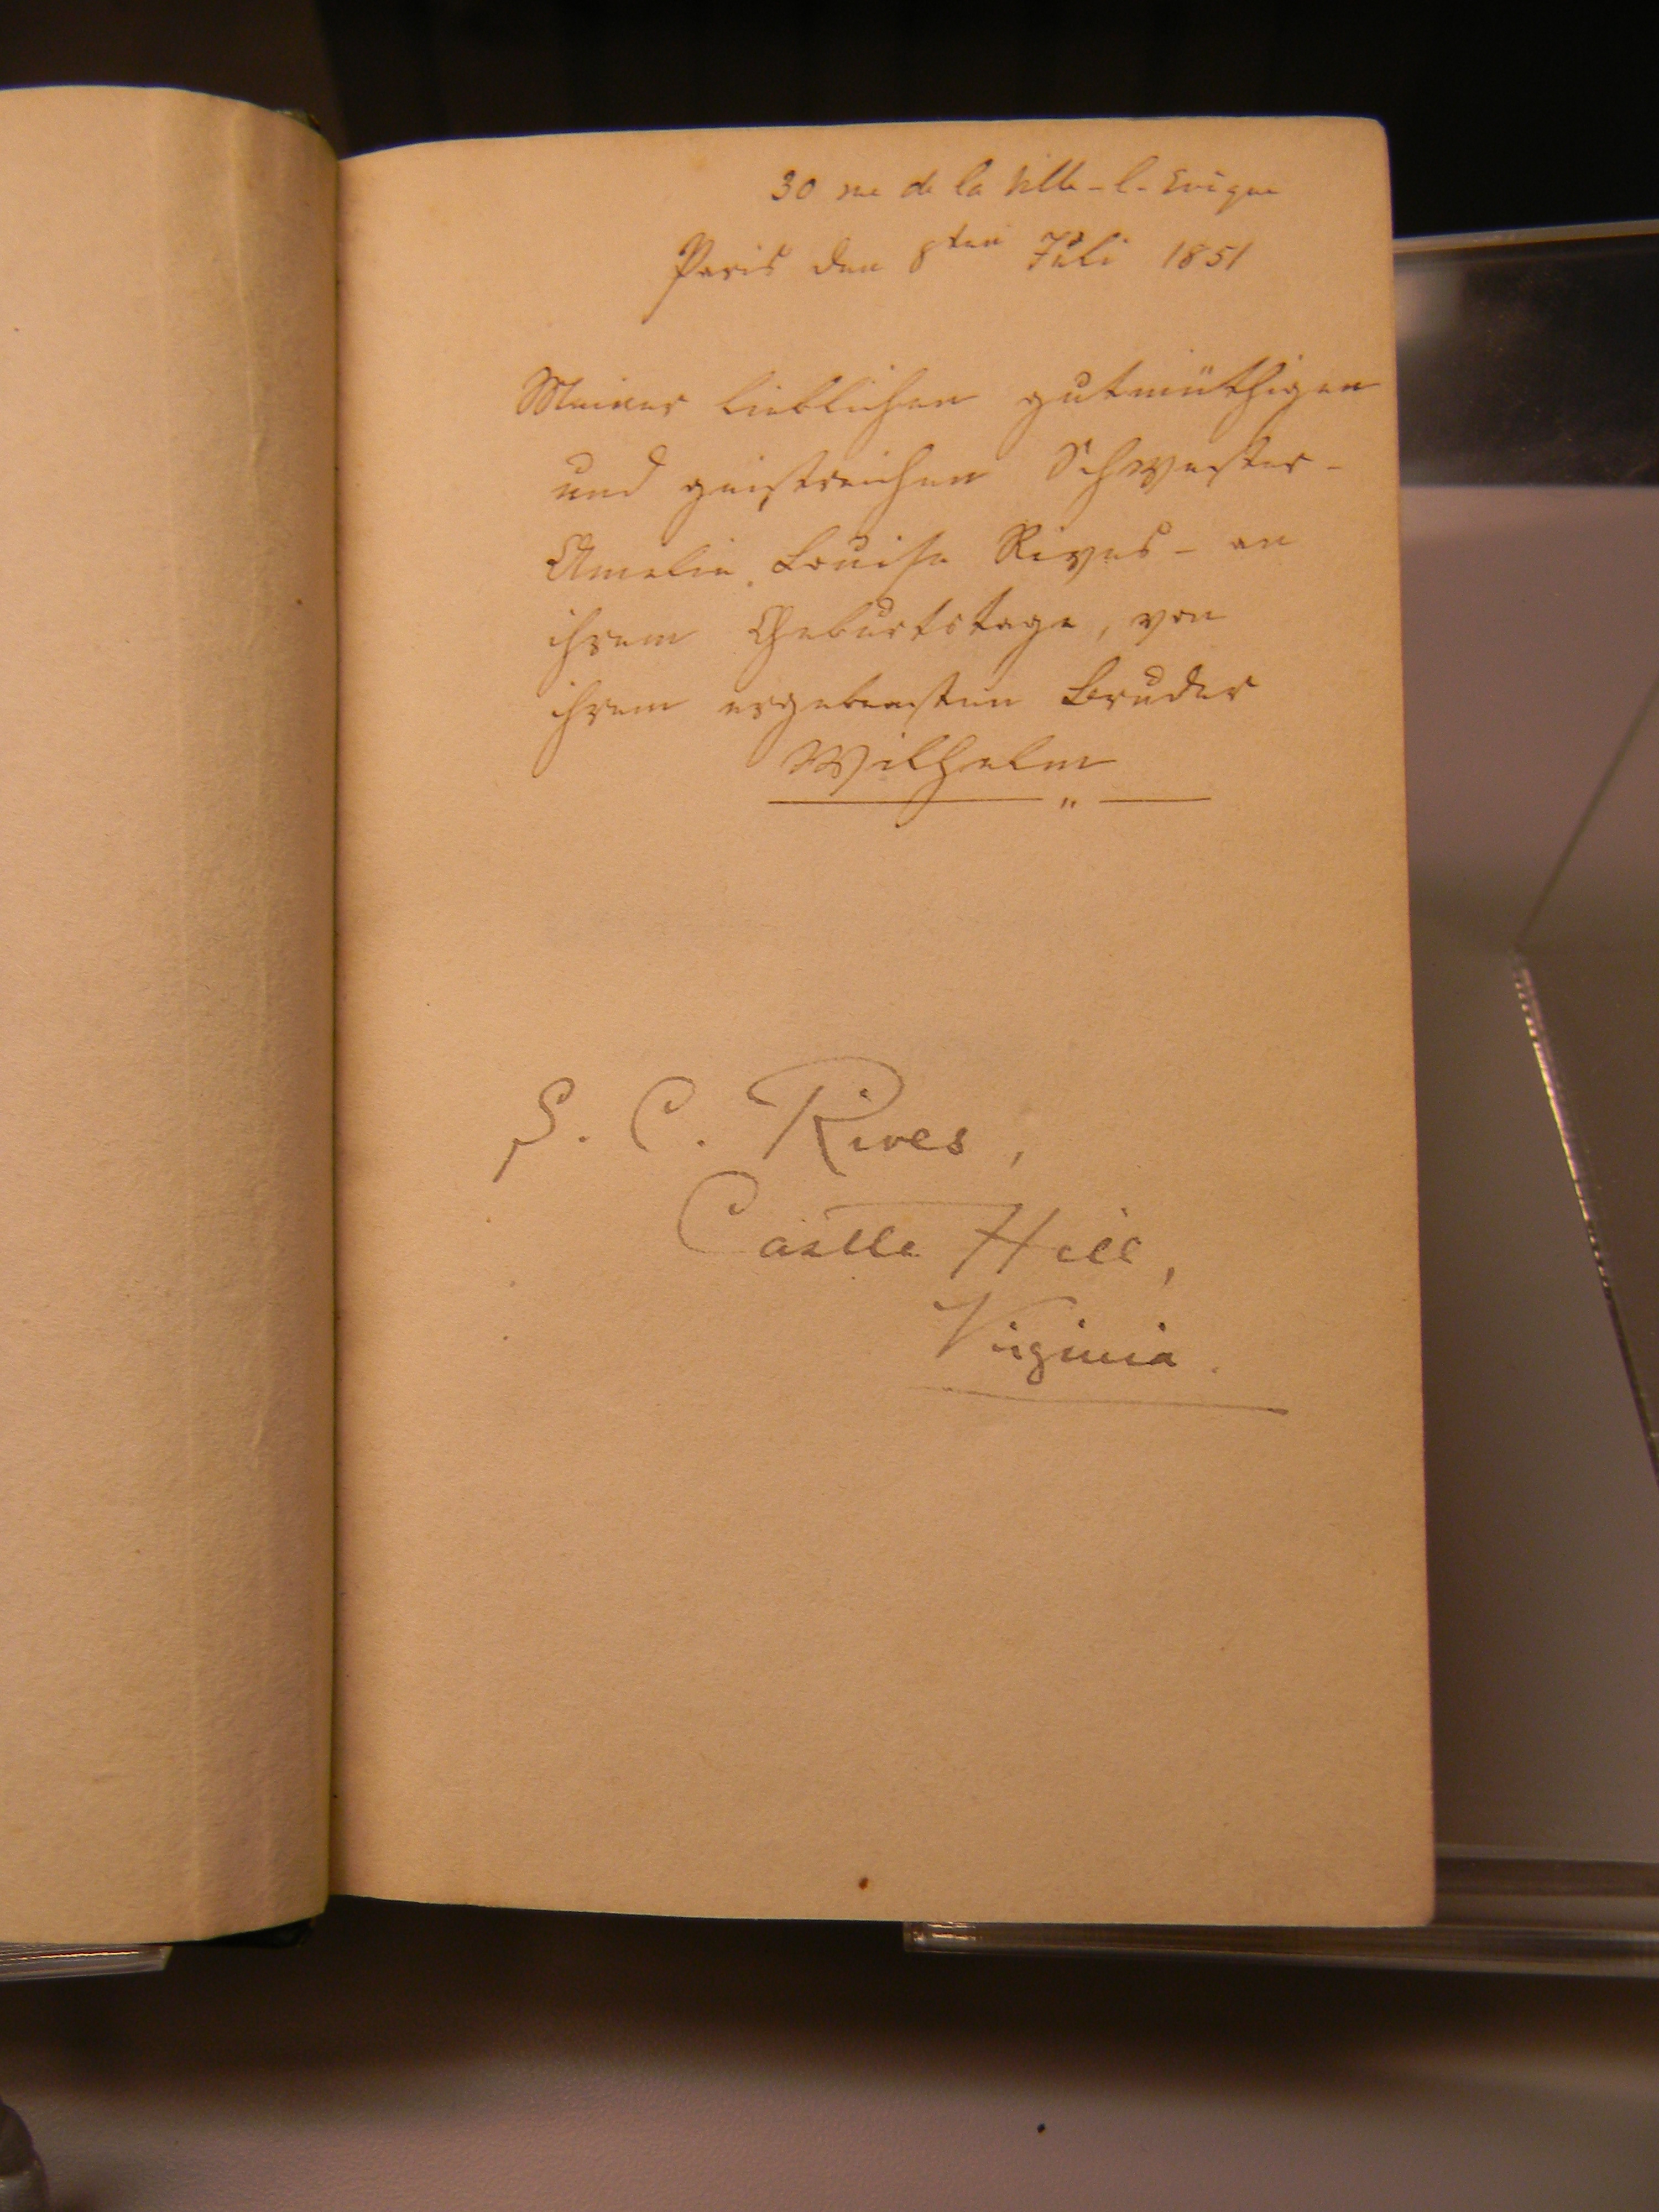 30 rue de la Ville-l-Evêque
Paris den 8ten Juli 1851
Meiner lieblichen gutmüthigen
und geistreichen Schwester -
Amelie Louise Rives - an
ihrem Geburtstage, von
ihrem ergebensten Bruder
Wilhelm
S. C. Rives,
Castle Hill,
Virginia.